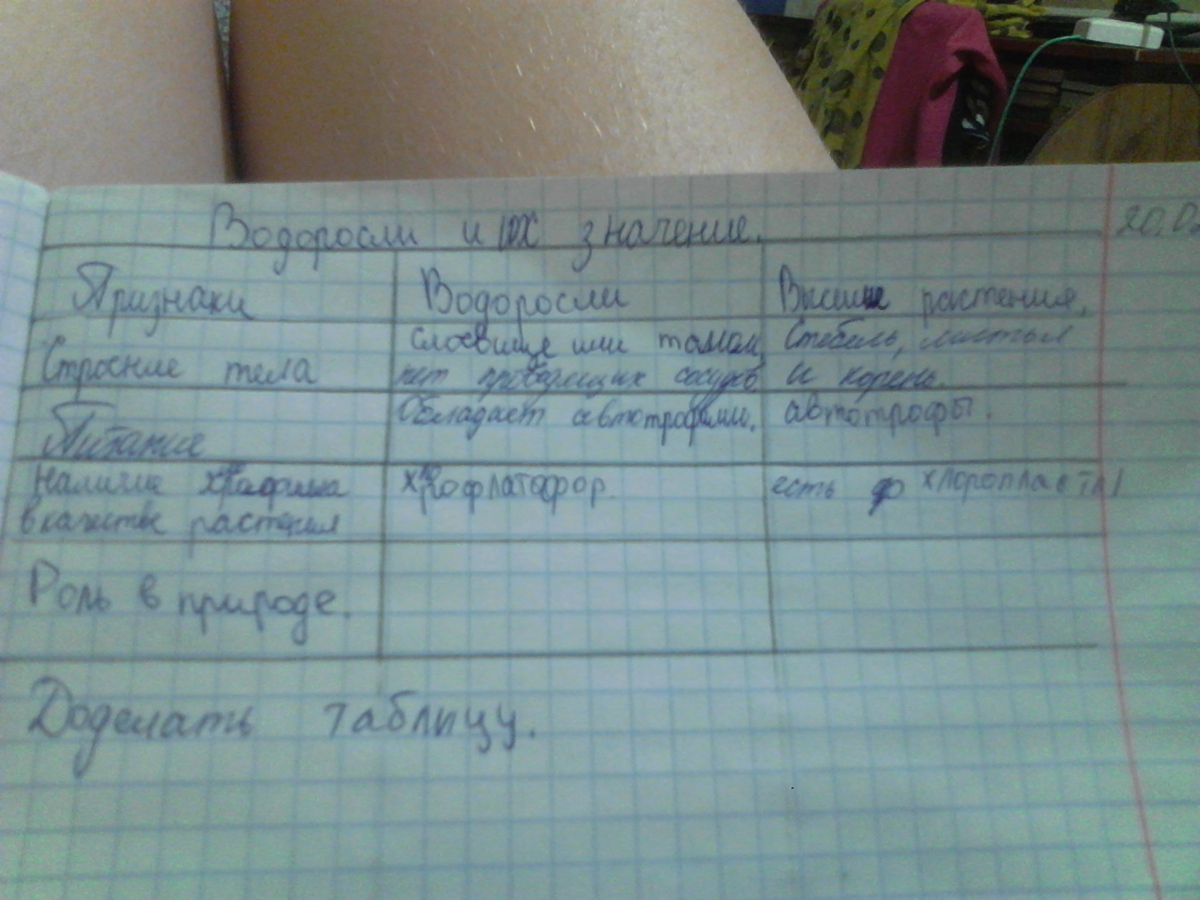 Водоросли и их значение.
20.0
Признаки Водоросли Высшие растения.
Строение тела Слоевище или талом, нет проводящих сосудов Стебель, листья и корень.
Питание Обладает автотрофами. автотрофы.
Наличие в качестве растения хрофлатофор. есть хлоропласты
Роль в природе.
Доделать таблицу.